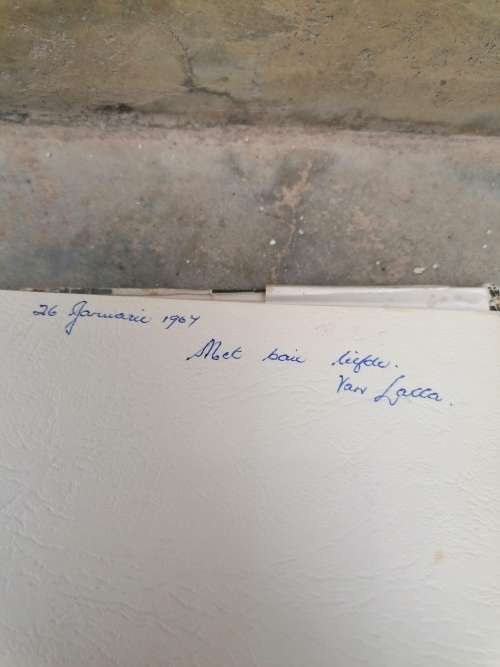 26 Januarie 1967
Met baie liefde.
Van Lalla.